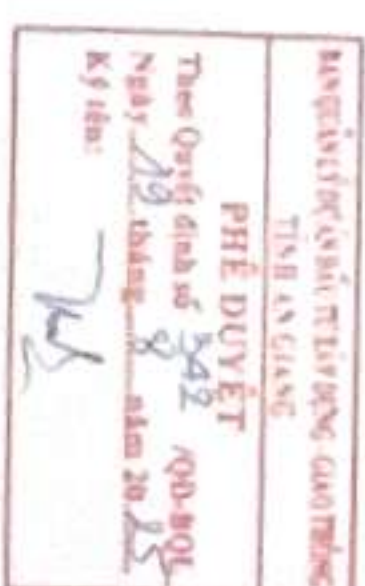 BAN QUẢN LÝ DỰ ÁN ĐẦU TƯ XÂY DỰNG GIAO THÔNG
TỈNH AN GIANG
PHÊ DUYỆT
Theo Quyết định số 342 /QĐ-BQL
Ngày 29 tháng 8 năm 20 25
Ký tên: